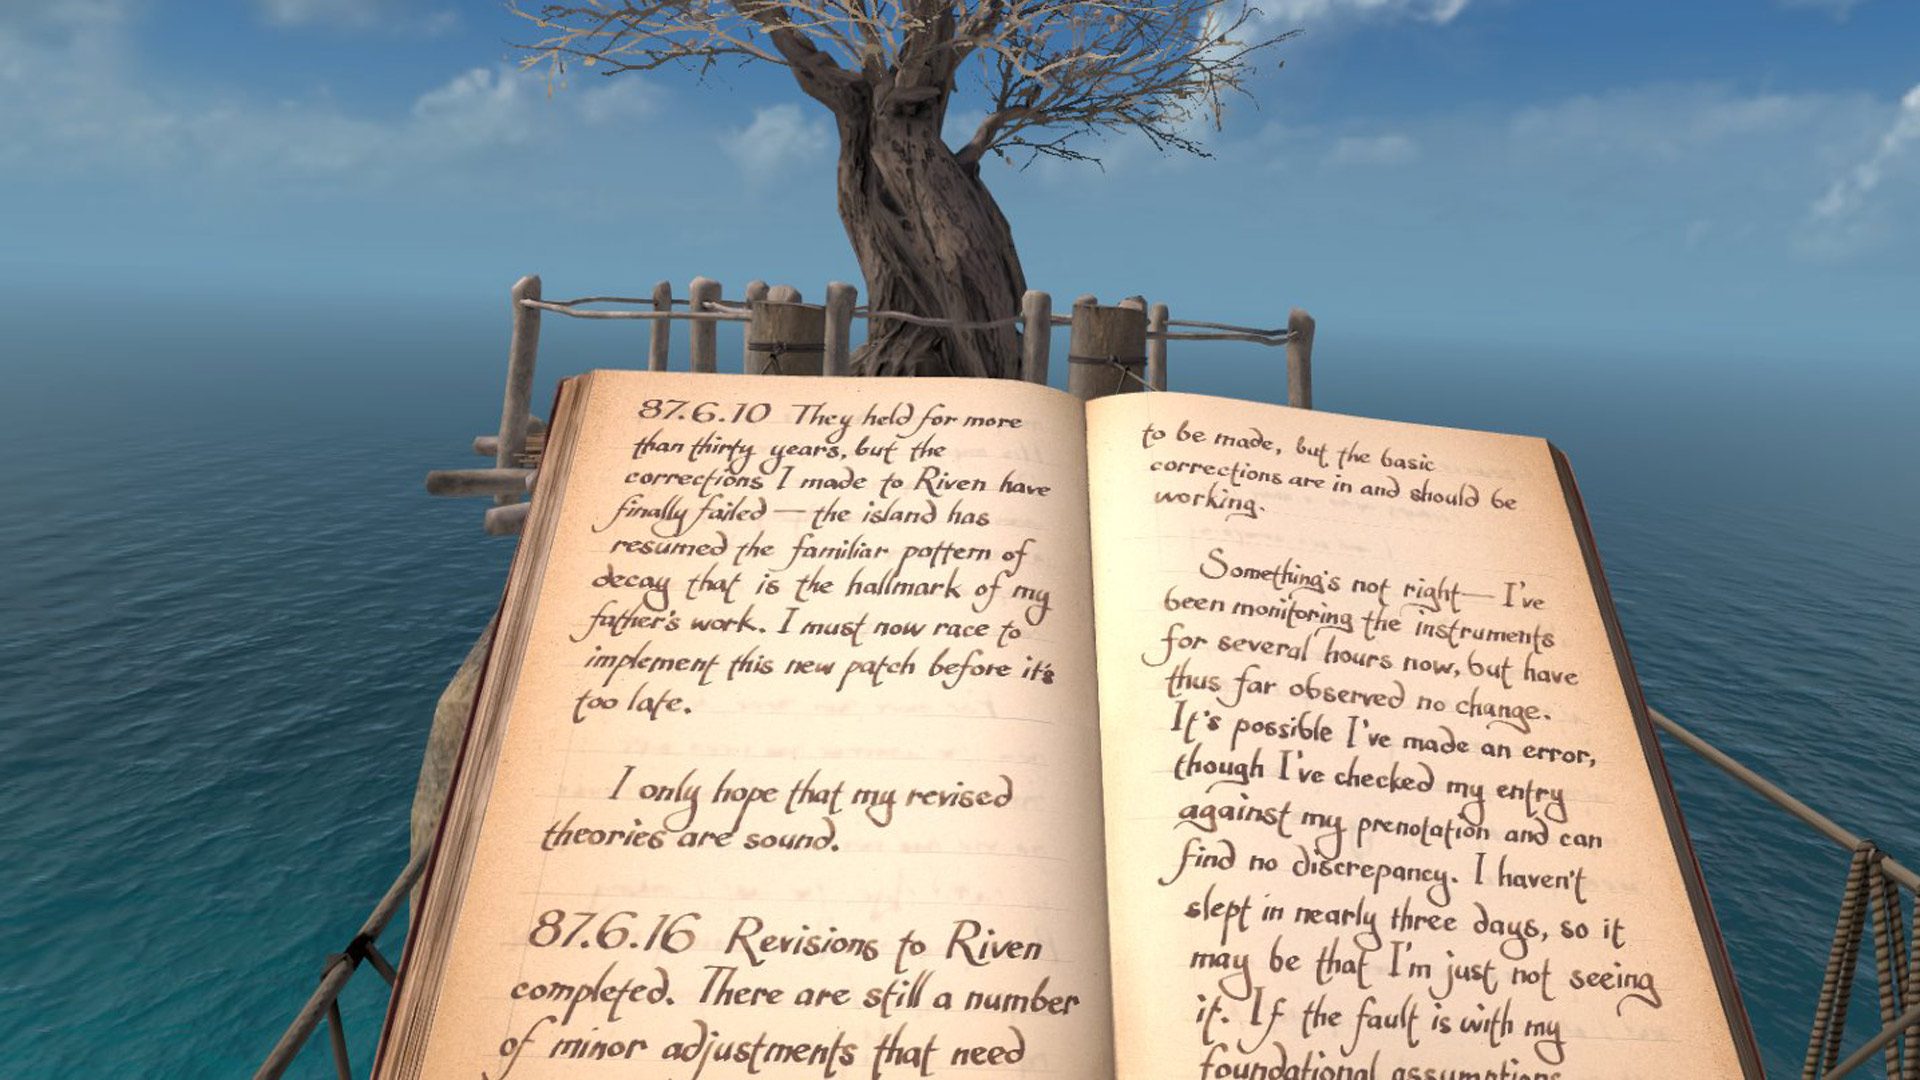 87.6.10 They held for more
than thirty years, but the
corrections I made to Riven have
finally failed — the island has
resumed the familiar pattern of
decay that is the hallmark of my
father's work. I must now race to
implement this new patch before it's
too late.
I only hope that my revised
theories are sound.
87.6.16 Revisions to Riven
completed. There are still a number
of minor adjustments that need
to be made, but the basic
corrections are in and should be
working.
Something's not right — I've
been monitoring the instruments
for several hours now, but have
thus far observed no change.
It's possible I've made an error,
though I've checked my entry
against my prenotation and can
find no discrepancy. I haven't
slept in nearly three days, so it
may be that I'm just not seeing
it. If the fault is with my
foundational assumptions